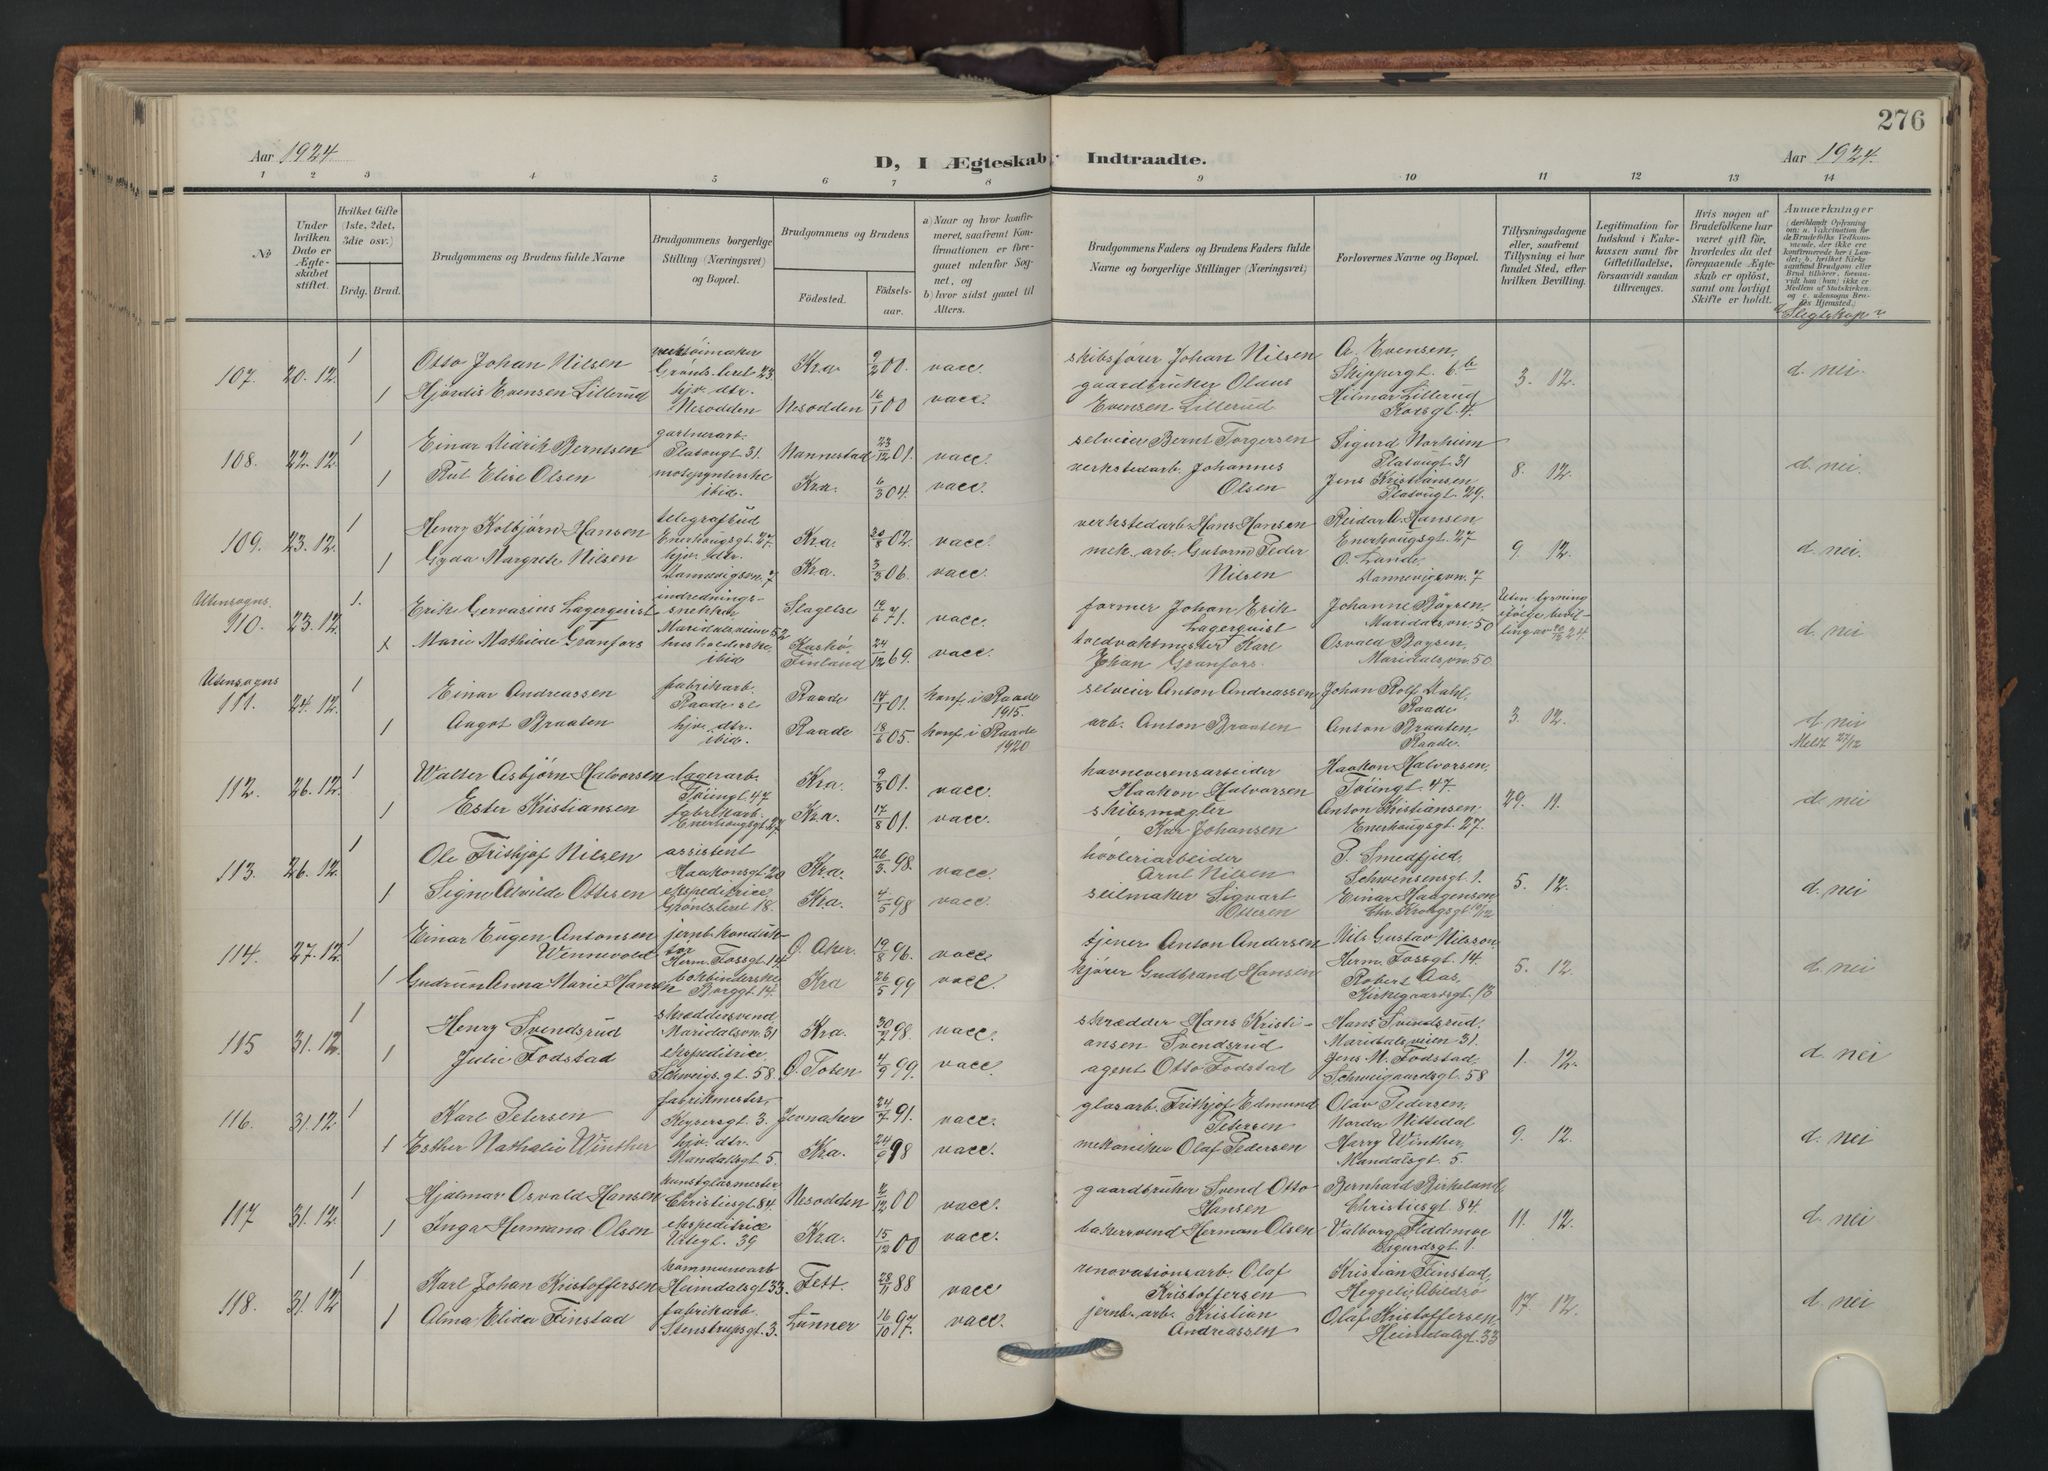 276
Aar 1924
D, I Ægteskab Indtraadte.
Aar 1924.
1 2 3 4 5 6 7 8 9 10 11 12 13 14
No
Under hvilken Dato er Ægteskabet stiftet.
Hvilket Gifte (1ste, 2det, 3die osv.)
Brdg. Brud.
Brudgommens og Brudens fulde Navne
Brudgommens borgerlige Stilling (Næringsvei) og Bopæl.
Brudgommens og Brudens
Fødested.
Fødselsaar.
a) Naar og hvor konfirmeret, saafremt Konfirmationen er foregaaet udenfor Sognet, og
b) hvor sidst gaaet til Alters.
Brudgommens Faders og Brudens Faders fulde Navne og borgerlige Stillinger (Næringsvei)
Forlovernes Navne og Bopæl.
Tillysningsdagene eller, saafremt Tillysning ei har fundet Sted, efter hvilken Bevilling.
Legitimation for Indskud i Enkekassen samt for Giftetilladelse, forsaavidt saadan tiltrænges.
Hvis nogen af Brudefolkene har været gift før, hvorledes da det foregaaende Ægteskab er opløst, samt om lovligt Skifte er holdt.
Anmærkninger
(deriblandt Oplysning om: a. Vakcination for de Brudefolks Vedkommende, der ikke ere konfirmerede her i Landet; b. hvilket Kirkesamfund Brudgom eller Brud tilhører, forsaavidt han (hun) ikke er Medlem af Statskirken, og c. udensogns Bruds Hjemsted.)
d. Slegtskap?
107. 20.12. 1 Otto Johan Nilsen verktøimaker Grønlsleret 23 Kra 9/2 00. vacc. skibsfører Johan Nilsen A. Evensen, Skippergt. 6b 3. 12. d. nei.
1 Hjørdis Evensen Lillerud hjv. dtr. Nesodden Nesodden 16/1 00 vacc. gaardbruker Olaus Evensen Lillerud Hilmar Lillerud Korsgt. 4.
108. 22.12. 1 Einar Didrik Berntsen gartnerarb. Platougt 31. Nannestad 23/12 01. vacc. selveier Bernt Torgersen Sigurd Norheim Platougt 31 8. 12. d. nei.
1 Rut Elise Olsen motepynterske ibid. Kra. 6/3 04. vacc. verkstedarb. Johannes Olsen Jens Kristiansen Platougt. 29.
109. 23.12. 1 Henry Kolbjørn Hansen telegrafbud Enerhougsgt. 27. Kra. 20/8 02. vacc. verkstedarb. Hans Hansen Reidar A. Hansen Enerhougsgt. 27 9. 12. d. nei.
1 Gyda Margrete Nilsen hjv. dtr. Dannevigsvn. 7 Kra. 3/3 06. vacc. mek. arb. Gutorm Peder Nilsen O. Lande, Dannevigsvn. 7
Utensogns.
110. 23.12. 1. Erik Gervasius Lagerquist indredningssnekker Maridalsveien 52 Slagelse 19/6 71. vacc. former Johan Erik Lagerquist Johanne Bøysen, Maridalsvn 50 Uten lysning ifølge bevilling av 20/12 24. d. nei
x Marie Mathilde Granfors husholderske ibid Kaskö, Finland 24/12 69. vacc. toldvaktmester Karl Johan Granfors. Osvald Boysen, Maridalsvn. 50.
Utensogns
111. 24.12. 1 Einar Andreassen fabrikarb. Raade st Raade 14/1 01. konf. i Raade 1915. selveier Anton Andreassen Johan Rolf Dahl, Raade 3. 12. d. nei Meldt 27/12
1 Aagot Braaten hjv. dtr. ibid. Raade 18/6 05. konf. i Raade 1920 arb. Anton Braaten Anton Braaten, Raade.
112. 26.12. 1 Walter Asbjørn Halvorsen lagerarb. Tøiengt. 47 Kra. 9/3 01. vacc. havnevesensarbeider Haakon Halvorsen Haakon Halvorsen, Tøiengt. 47 29. 11. d. nei
1 Ester Kristiansen fabrikarb. Enerhougsgt. 27 Kra. 17/8 01. vacc. skibsmægler Kar Johansen Anton Kristiansen, Enerhougsgt. 27.
113. 26.12. 1 Ole Frithjof Nilsen assistent Haakonsgt. 20 Kra. 26/3 98. vacc. høvleriarbeider Arnt Nilsen P. Smedfjeld, Schwensensgt. 1. 5. 12. d. nei
1 Signe Alvilde Ottesen ekspeditrice Grønlsleret 18. Kra. 4/5 98 vacc. seilmaker Sigvart Ottesen Einar Haagensen Chr. Krohgsgt 10/12
114. 27.12. 1 Einar Eugen Antonsen Wennevold jernb. konduktør Herm. Fossgt. 14. Ø. Aker 19/8 96. vacc tjener Anton Andersen Nils Gustav Nilsson, Herm. Fossgt. 14. 5. 12. d. nei
1 Gudrun Anna Marie Hansen bokbinderske Borggt. 14. Kra 26/5 99 vacc kjører Gudbrand Hansen Robert Aas, Kirkegaardsgt. 13
115 31.12. 1 Henry Svendsrud skreddersvend Maridalsvn. 31 Kra. 30/7 98. vacc. skrædder Hans Kristiansen Svendsrud Hans Svendsrud, Maridalsveien 31. 1. 12. d. nei
1 Julie Fodstad ekspeditrice Schweigs. gt. 58 Ø. Toten 4/9 99. vacc. agent Otto Fodstad Jens M. Fodstad Schweigaardsgt. 58
116. 31.12. 1 Karl Petersen fabrikmester, Keysersgt. 3. Jevnaker 24/7 91. vacc. glasarb. Frithjof Edmund Petersen Olav Pedersen, Nordre Nittedal 9. 12. d. nei
1 Esther Nathalie Winther hjv. dtr. Mandalsgt. 5. Kra. 24/9 98 vacc. mekaniker Olaf Pedersen Harry Winther, Mandalsgt. 5.
117 31.12. 1 Hjalmar Osvald Hansen kunstglasmester Christiesgt. 84. Nesodden 2/12 00 vacc. gaardbruker Svend Otto Hansen Bernhard Birkeland, Christiesgt. 84. 11. 12. d. nei
1 Inga Hermana Olsen ekspeditrice Urtegt. 39 Kra. 15/12 00 vacc. bakersvend Herman Olsen Valborg Flademoe Sigurdsgt. 1.
118. 31.12 1 Karl Johan Kristoffersen kommunearb Heimdalsgt 33. Fett. 28/11 88 vacc renovationsarb. Olaf Kristoffersen Kristian Finstad, Heggeli, Abildsø 17. 12. d. nei
1 Alma Elida Finstad fabrikarb. Stenstrupsgt. 3. Lunner 16/10 97. vacc. jernb. arb. Kristian Andreassen Olaf Kristoffersen, Heimdalsgt. 33